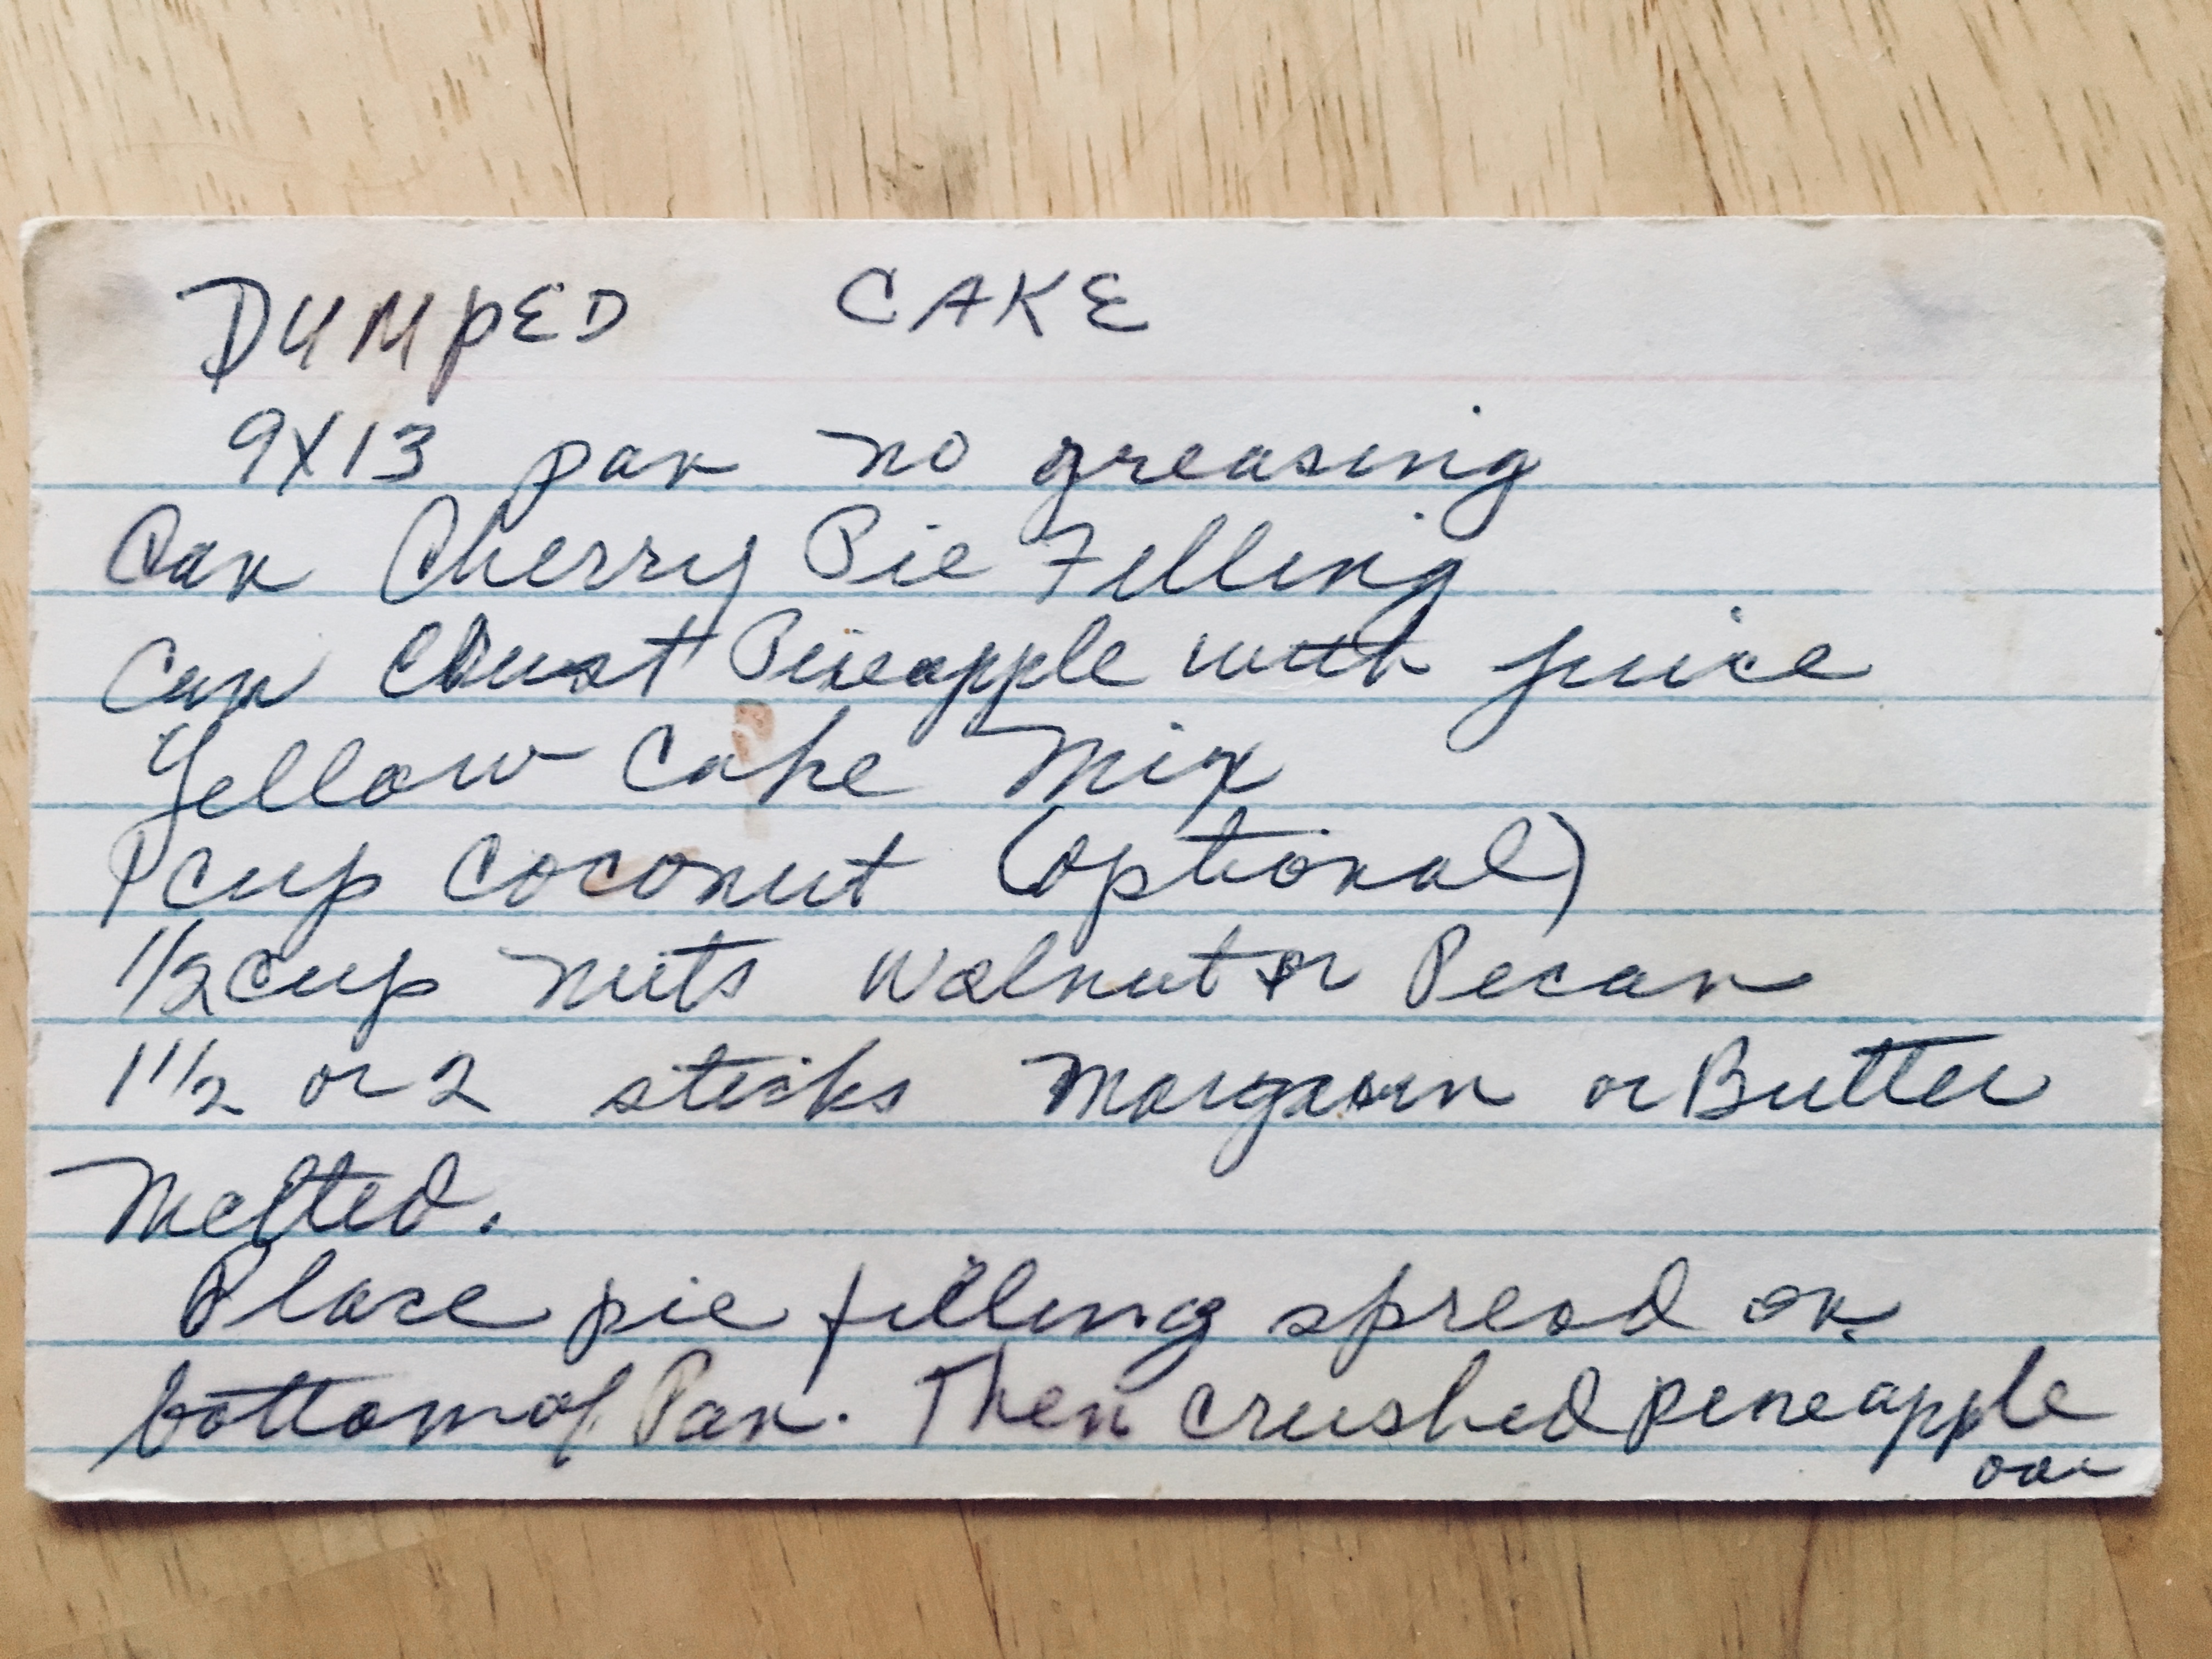 DUMPED CAKE
9X13 pan no greasing
Can Cherry Pie Filling
Can Crust Pineapple with juice
Yellow Cake Mix
1 cup Coconut (optional)
1/2 cup nuts Walnut or Pecan
1 1/2 or 2 sticks Margaarn or Butter
Melted.
Place pie filling spread on
bottom of Pan. Then crushed pineapple